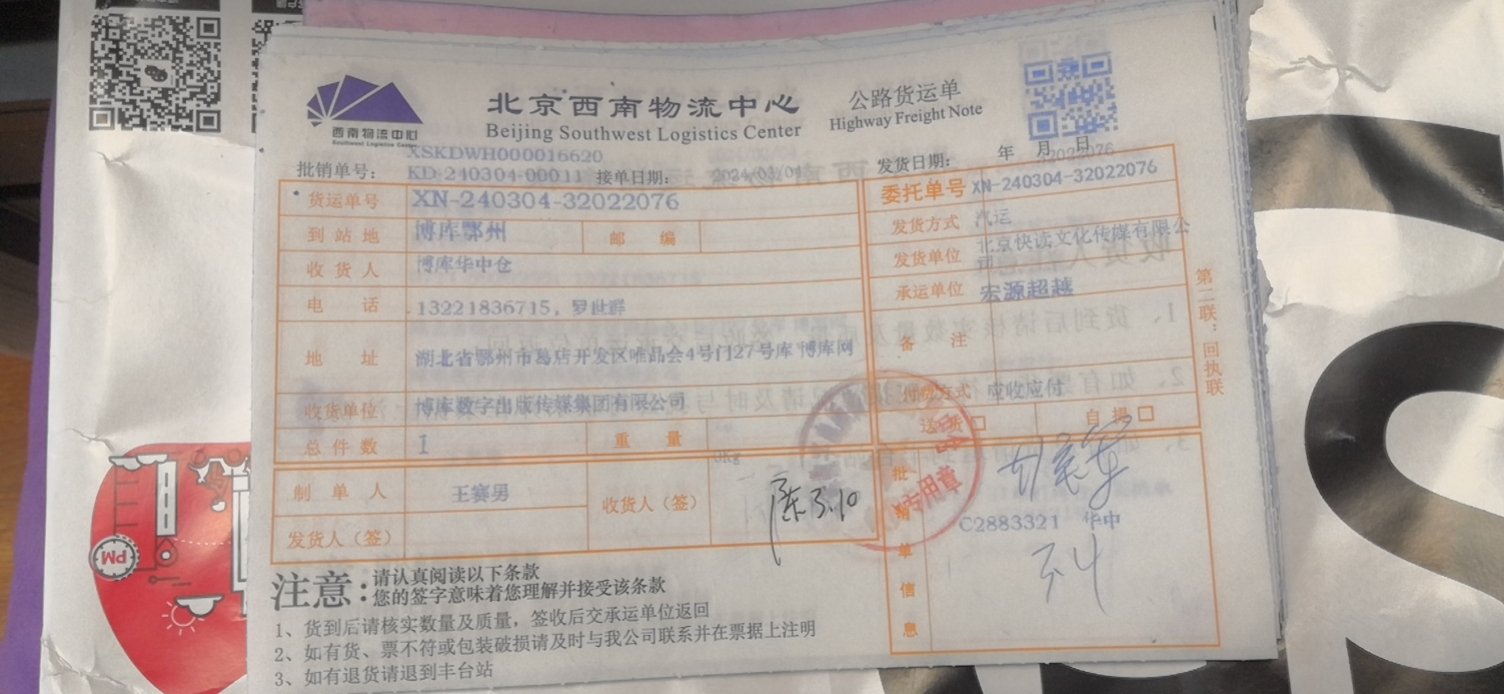 西南物流中心
Southwest Logistics Center
北京西南物流中心
Beijing Southwest Logistics Center
公路货运单
Highway Freight Note
XSKDWH000016620
批销单号：KD-240304-00011 接单日期：2024/03/04
发货日期： 年 月 日
32022076
货运单号 XN-240304-32022076
委托单号 XN-240304-32022076
到站地 博库鄂州 邮编
发货方式 汽运
收货人 博库华中仓
发货单位 北京快读文化传媒有限公司
电话 13221836715，罗世群
承运单位 宏源超越
地址 湖北省鄂州市葛店开发区唯品会4号门27号库 博库网
备注
收货单位 博库数字出版传媒集团有限公司
付费方式 应收应付
总件数 1 重量 0Kg
送货 自提
制单人 王赛男 收货人（签）
3.10
发货人（签）
批销单信息
C2883321 华中
专用章
第二联：回执联
注意：请认真阅读以下条款
您的签字意味着您理解并接受该条款
1、货到后请核实数量及质量，签收后交承运单位返回
2、如有货、票不符或包装破损请及时与我公司联系并在票据上注明
3、如有退货请退到丰台站
PM